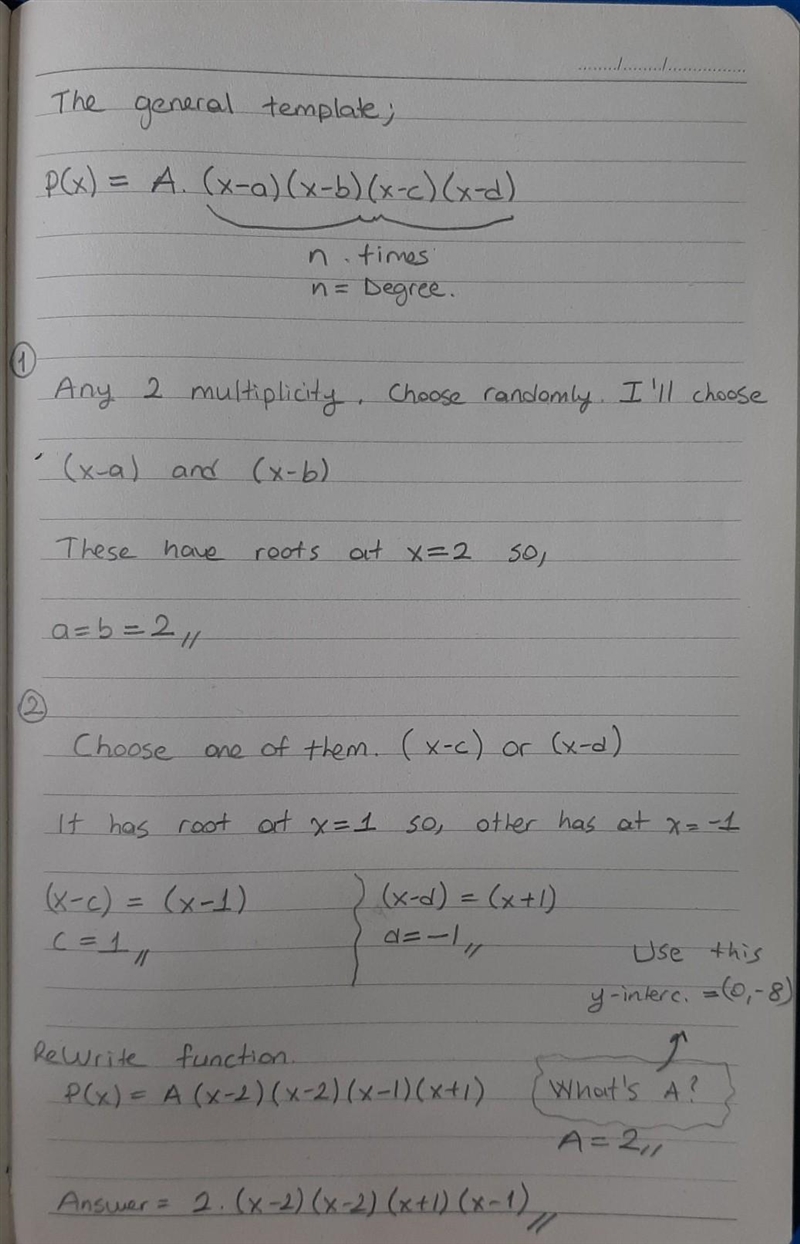 ......../......../..............
The general template;
P(x) = A. (x-a)(x-b)(x-c)(x-d)
n . times
n = Degree.
1
Any 2 multiplicity. Choose randomly. I'll choose
(x-a) and (x-b)
These have roots at x=2 so,
a=b=2//
2
Choose one of them. (x-c) or (x-d)
It has root at x=1 so, other has at x=-1
(x-c) = (x-1) (x-d) = (x+1)
c=1// d=-1//
Use this
y-interc. =(0,-8)
ReWrite function.
P(x) = A (x-2)(x-2)(x-1)(x+1) What's A?
A=2//
Answer = 2.(x-2)(x-2)(x+1)(x-1)//